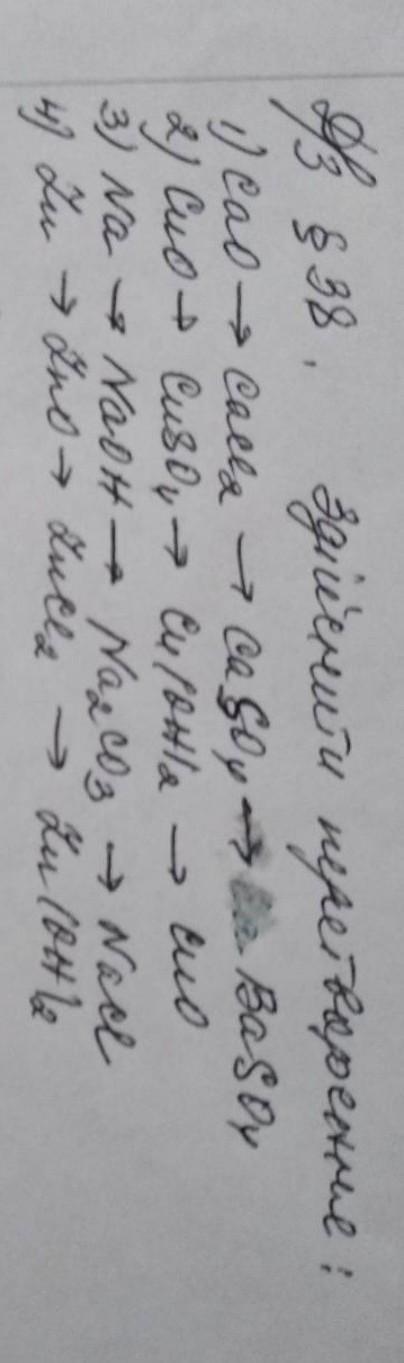 Д/З § 38. Здійснити перетворення:
1) CaO → CaCl₂ → CaSO₄ → BaSO₄
2) CuO → CuSO₄ → Cu(OH)₂ → CuO
3) Na → NaOH → Na₂CO₃ → NaCl
4) Zn → ZnO → ZnCl₂ → Zn(OH)₂